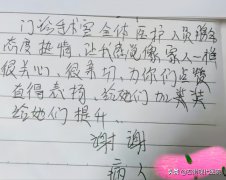 门诊手术室全体医护人员服务
态度热情,让我感觉像家人一样
很关心,很亲切,为你们点赞
值得表扬,给她们加奖
给她们提升.
谢谢
病人